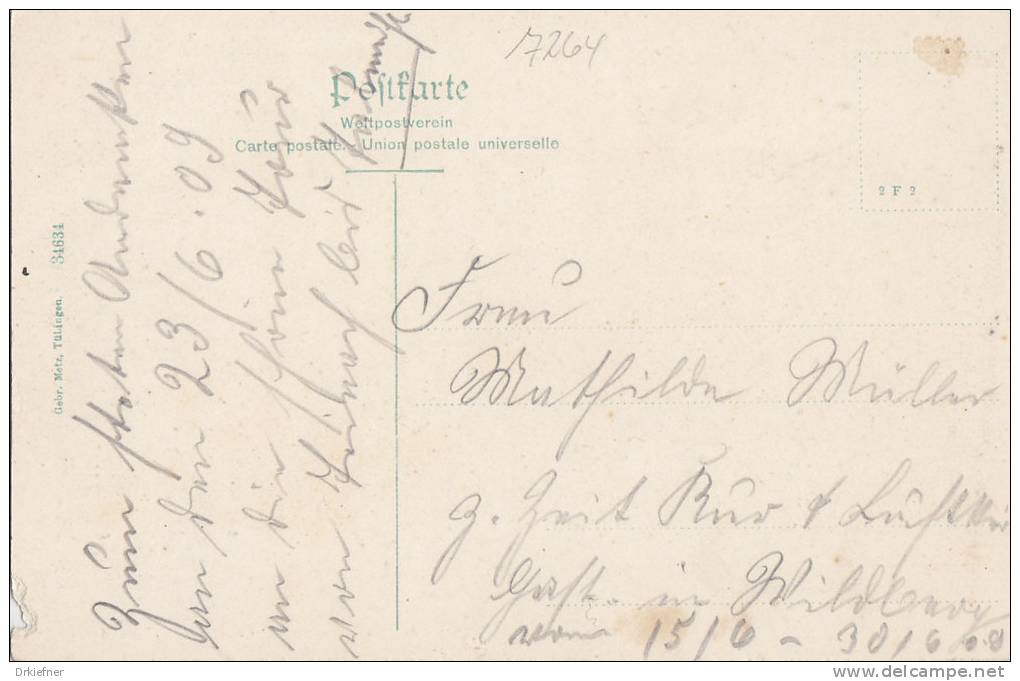 7264
Postkarte
Weltpostverein
Carte postale. - Union postale universelle
2 F 2
Gebr. Metz, Tübingen. 34634
Zum steten Andenken
an den 23/6.09
an die schöne Tour
von
Frau
Mathilde Müller
z. Zeit Kur & Luftkur
Gast. in Wildberg
vom 15/6 - 30/6 09
Drkiefner
www.delcampe.net